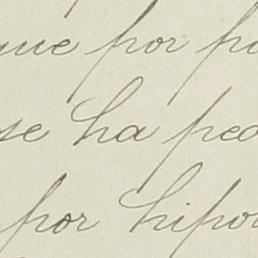 que por pa
se ha ped
por hipo